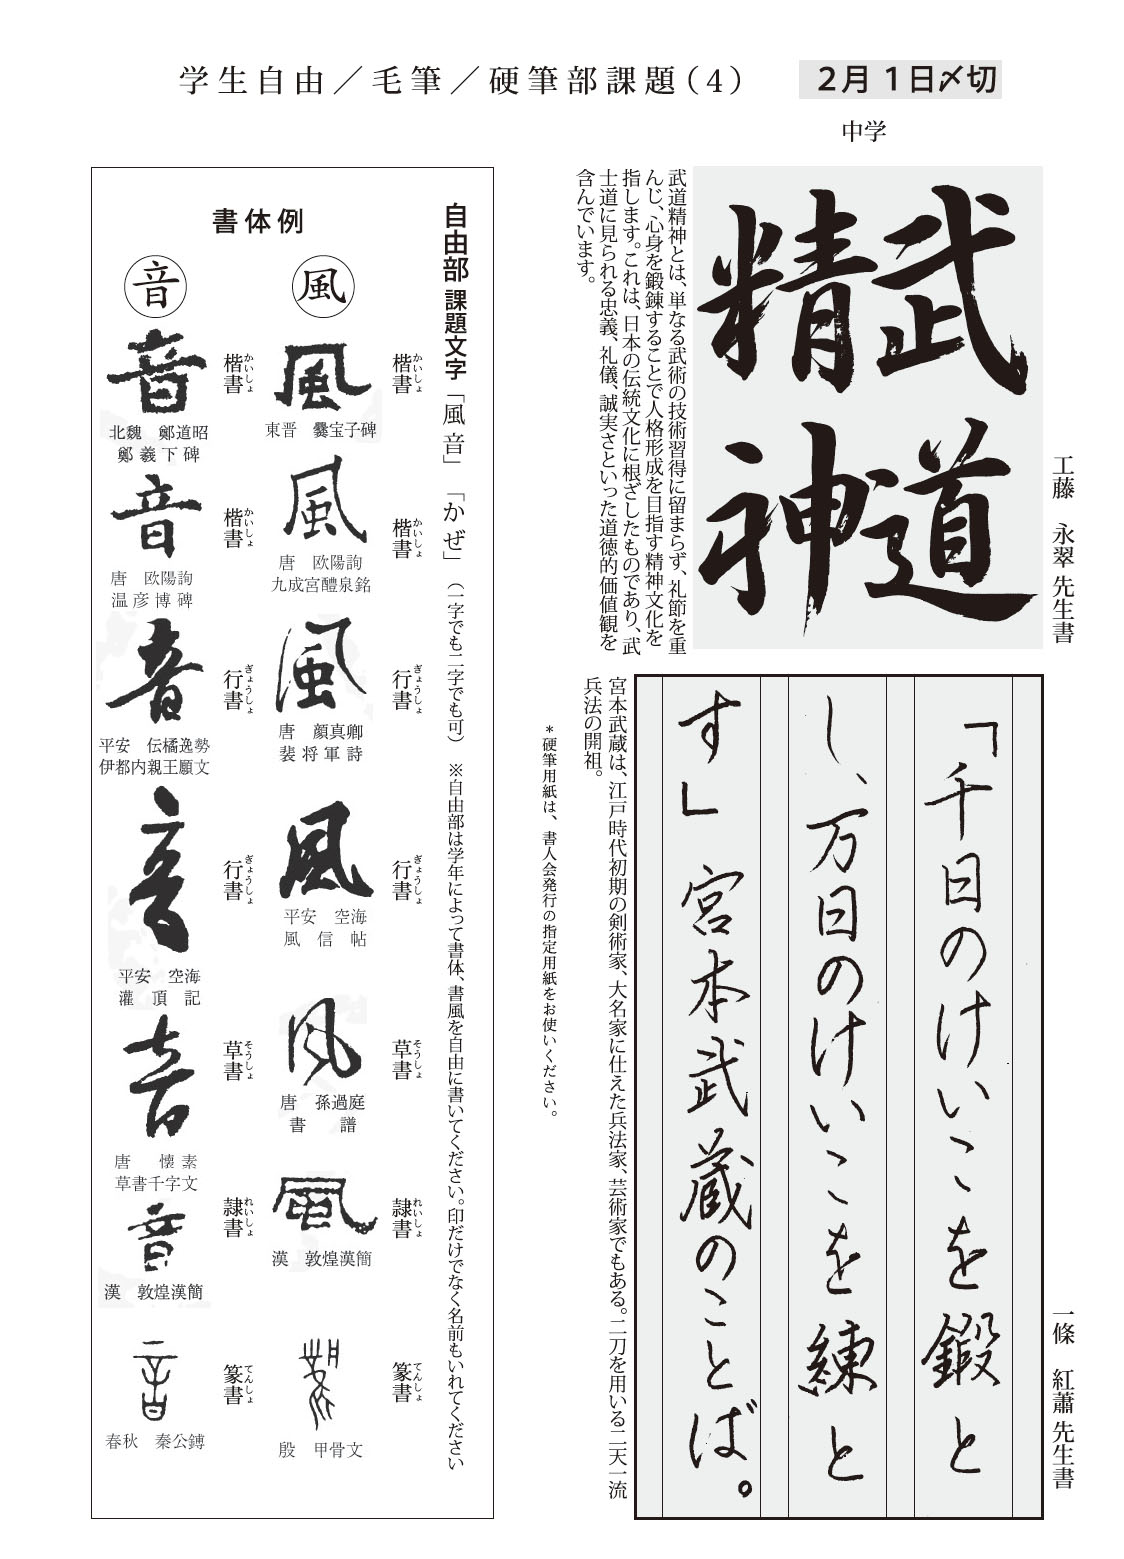 学生自由／毛筆／硬筆部課題(4)
２月１日〆切
中学
武道
精神
工藤　永翠先生書
武道精神とは、単なる武術の技術習得に留まらず、礼節を重
んじ、心身を鍛錬することで人格形成を目指す精神文化を
指します。これは、日本の伝統文化に根ざしたものであり、武
士道に見られる忠義、礼儀、誠実さといった道徳的価値観を
含んでいます。
一條　紅蕭先生書
「千日のけいこを鍛と
し、万日のけいこを練と
す」宮本武蔵のことば。
宮本武蔵は、江戸時代初期の剣術家、大名家に仕えた兵法家、芸術家でもある。二刀を用いる二天一流
兵法の開祖。
＊硬筆用紙は、書人会発行の指定用紙をお使いください。
自由部 課題文字「風音」「かぜ」（一字でも二字でも可）※自由部は学年によって書体、書風を自由に書いてください。印だけでなく名前もいれてください
書体例
風
楷書
かいしょ
風
東晋　爨宝子碑
楷書
かいしょ
風
唐　欧陽詢
九成宮醴泉銘
行書
ぎょうしょ
風
唐　顔真卿
裴将軍詩
行書
ぎょうしょ
風
平安　空海
風信帖
草書
そうしょ
風
唐　孫過庭
書譜
隷書
れいしょ
風
漢　敦煌漢簡
篆書
てんしょ
殷　甲骨文
音
楷書
かいしょ
音
北魏　鄭道昭
鄭羲下碑
楷書
かいしょ
音
唐　欧陽詢
温彦博碑
行書
ぎょうしょ
音
平安　伝橘逸勢
伊都内親王願文
行書
ぎょうしょ
音
平安　空海
灌頂記
草書
そうしょ
音
唐　懐素
草書千字文
隷書
れいしょ
音
漢　敦煌漢簡
篆書
てんしょ
音
春秋　秦公鎛